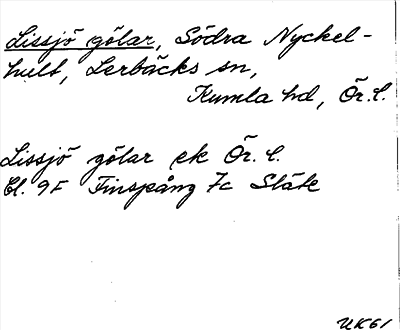 Lissjö gölar, Södra Nyckel-
hult, Lerbäcks sn,
Kumla hd, Ör. l.
Lissjö gölar ek Ör. l.
Bl. 9F Finspång 7c Släte
UK61